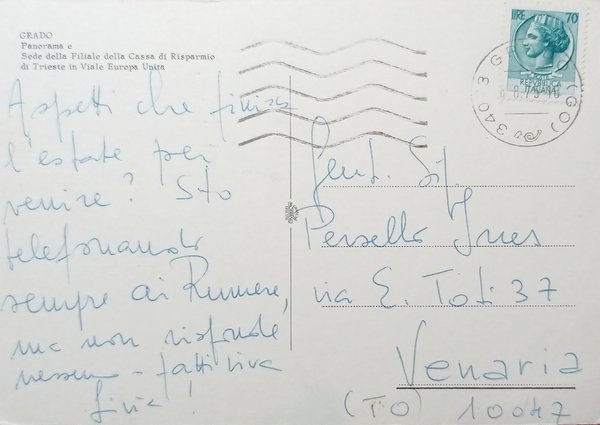 GRADO
Panorama e
Sede della Filiale della Cassa di Risparmio
di Trieste in Viale Europa Unita
Aspetti che finisca
l'estate per
venire? Sto
telefonando
sempre ai
ma non risponde
nessuno - fatti viva
Gent. Sig.
Persello Ines
via E. Toti 37
Venaria
(TO) 10047
LIRE 70
POSTE
REPVBBLICA
ITALIANA
3403 (GO)